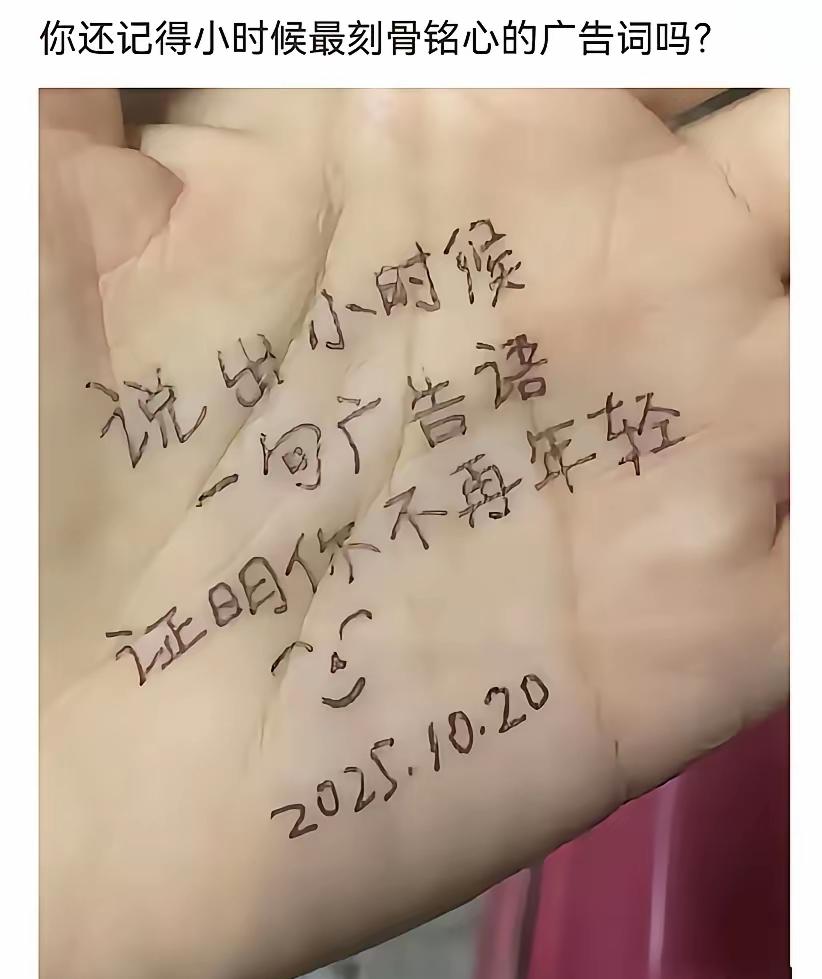 你还记得小时候最刻骨铭心的广告词吗?
说出小时候
一句广告语
证明你不再年轻
2025.10.20